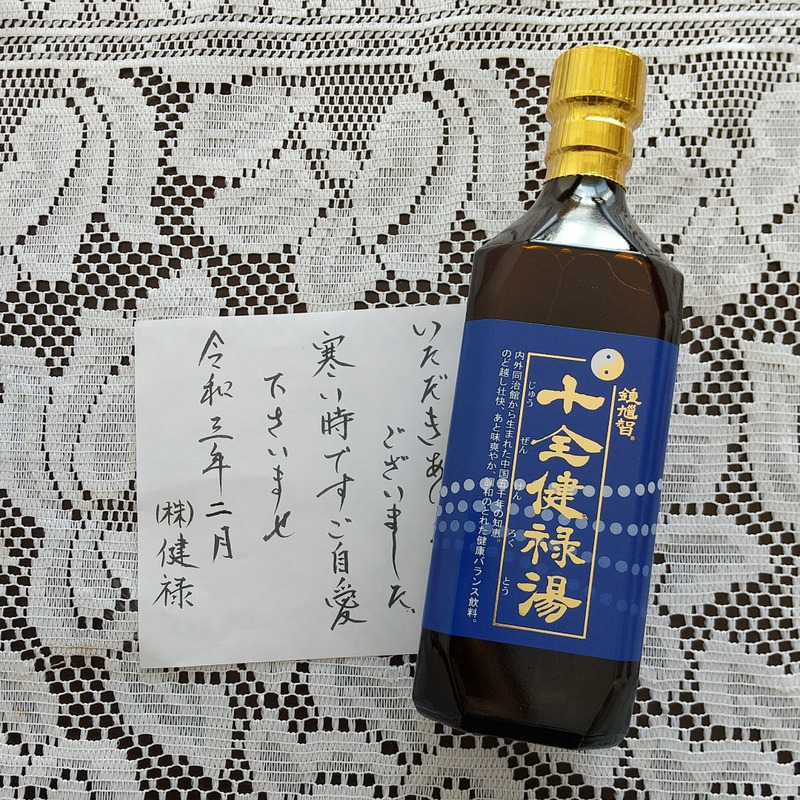 いただきあ
ございました、
寒い時ですご自愛
下さいませ
令和三年二月
(株)健禄
鍾馗智®
十全健禄湯
じゅう ぜん けん ろく とう
内外同治館から生まれた中国五千年の知恵。
のど越し壮快、あと味爽やか、調和のとれた健康バランス飲料。